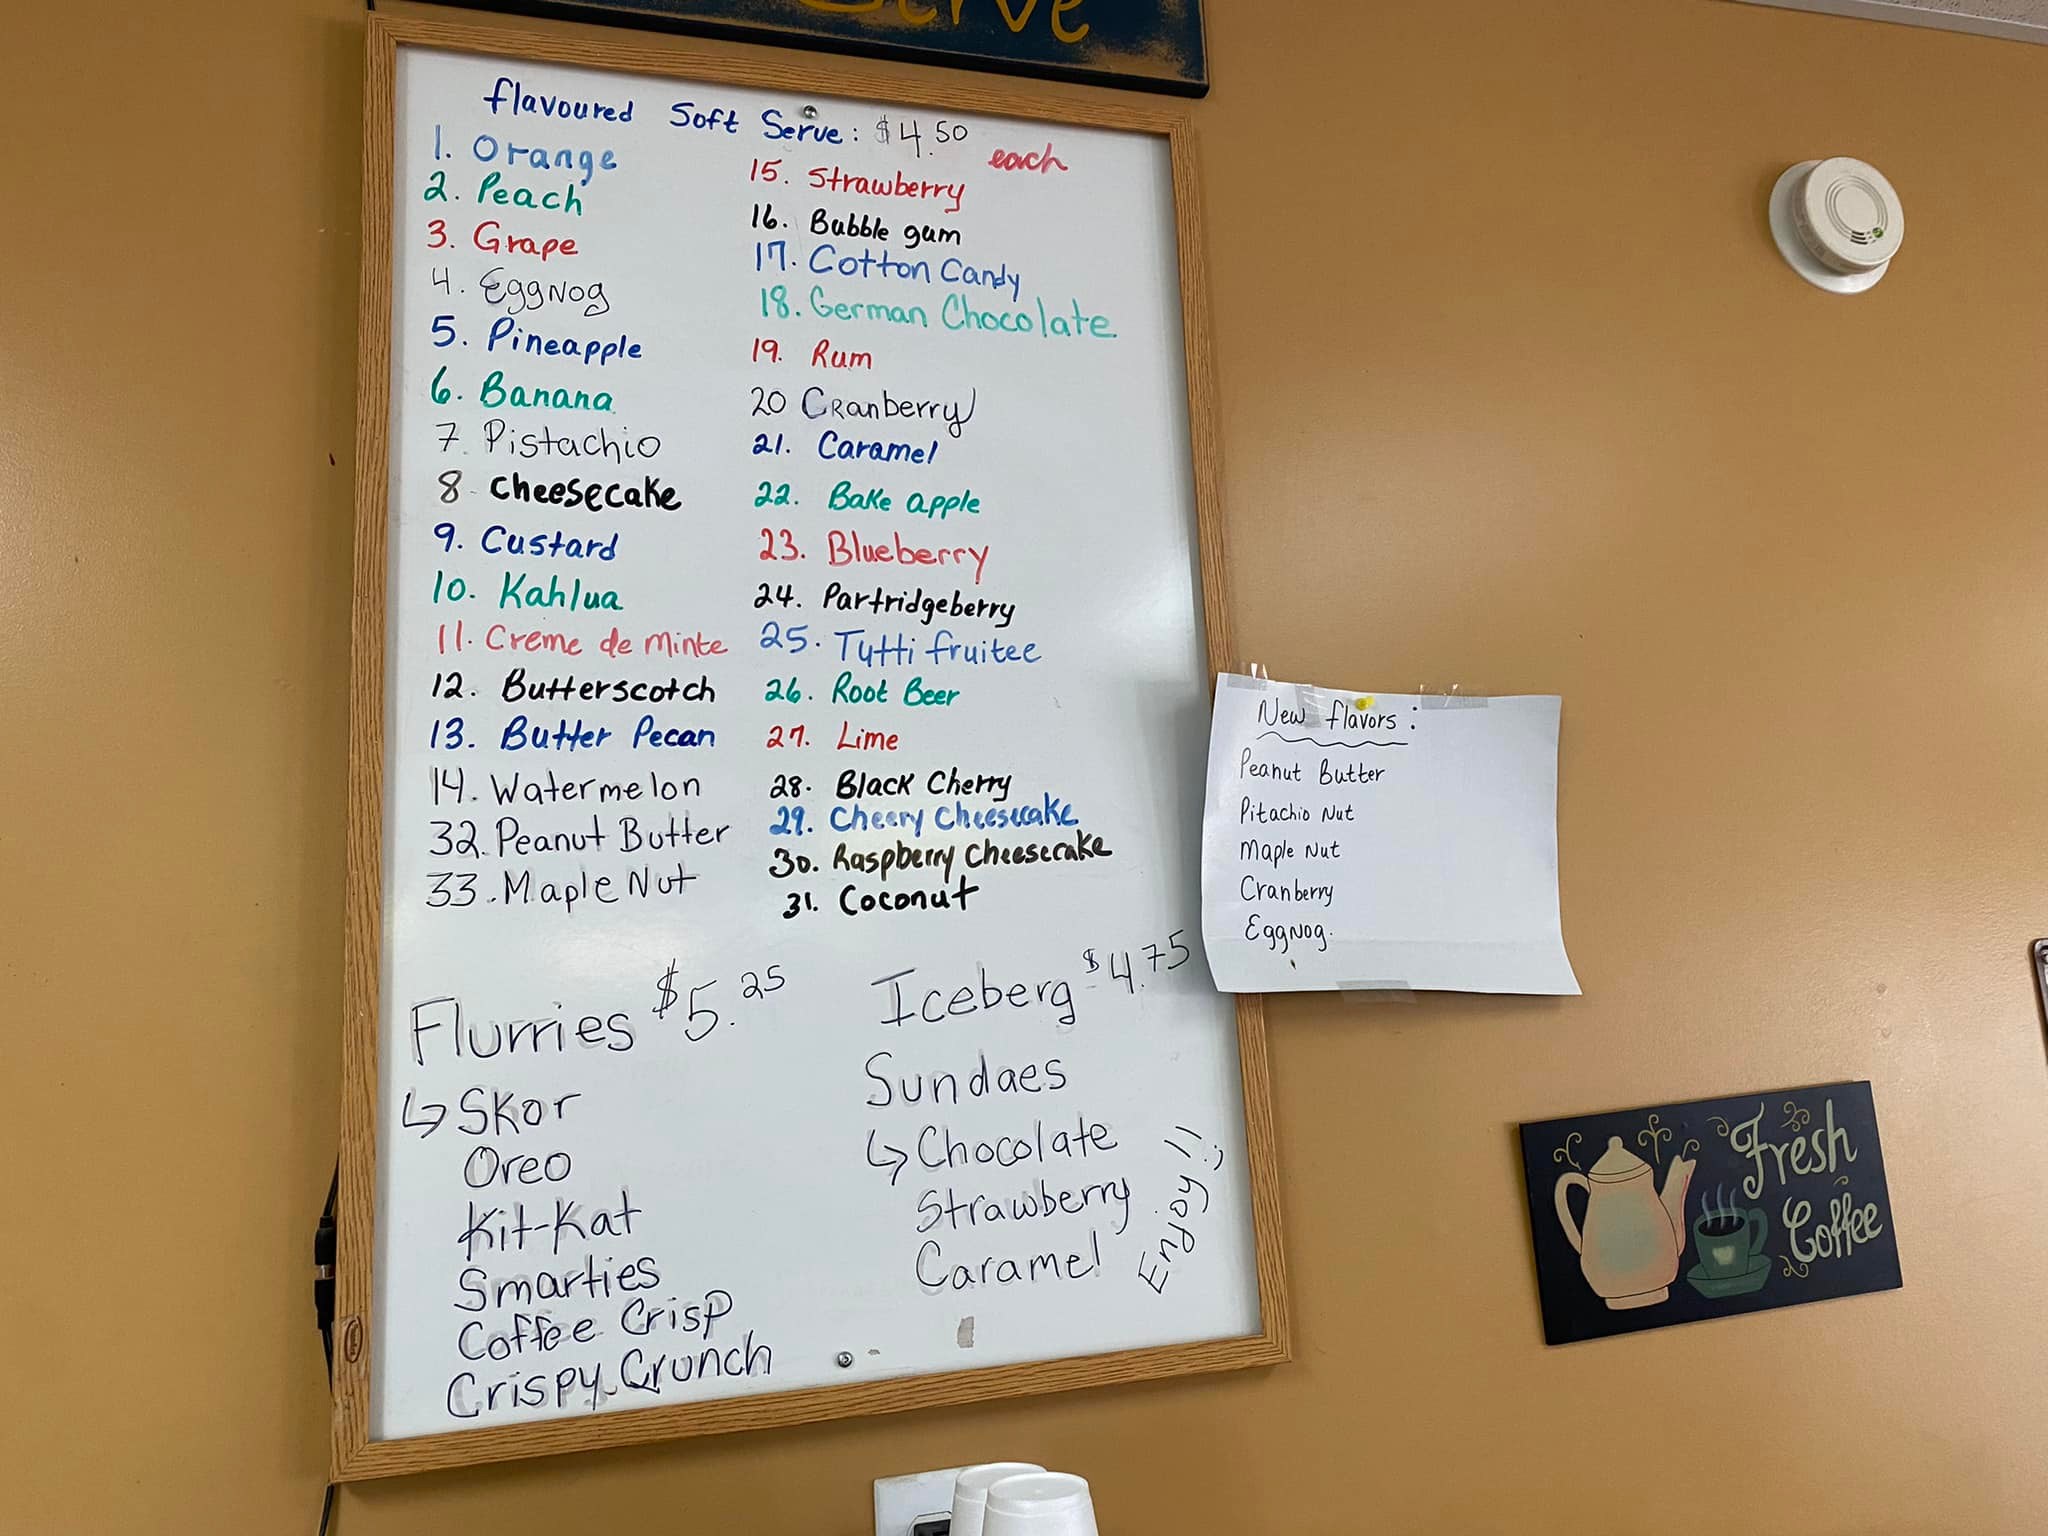 Serve
flavoured Soft Serve: $4.50 each
1. Orange
2. Peach
3. Grape
4. EggNog
5. Pineapple
6. Banana
7. Pistachio
8 - Cheesecake
9. Custard
10. Kahlua
11. Creme de minte
12. Butterscotch
13. Butter Pecan
14. Watermelon
32. Peanut Butter
33. Maple Nut
15. Strawberry
16. Bubble gum
17. Cotton Candy
18. German Chocolate
19. Rum
20 Cranberry
21. Caramel
22. Bake apple
23. Blueberry
24. Partridgeberry
25. Tutti fruitee
26. Root Beer
27. Lime
28. Black Cherry
29. Cheery Cheesecake
30. Raspberry Cheesecake
31. Coconut
Flurries $5.25
↳ Skor
Oreo
Kit-Kat
Smarties
Coffee Crisp
Crispy Crunch
Iceberg $4.75
Sundaes
↳ Chocolate
Strawberry
Caramel
Enjoy!! :)
New flavors:
Peanut Butter
Pitachio Nut
Maple Nut
Cranberry
EggNog.
Fresh
Coffee